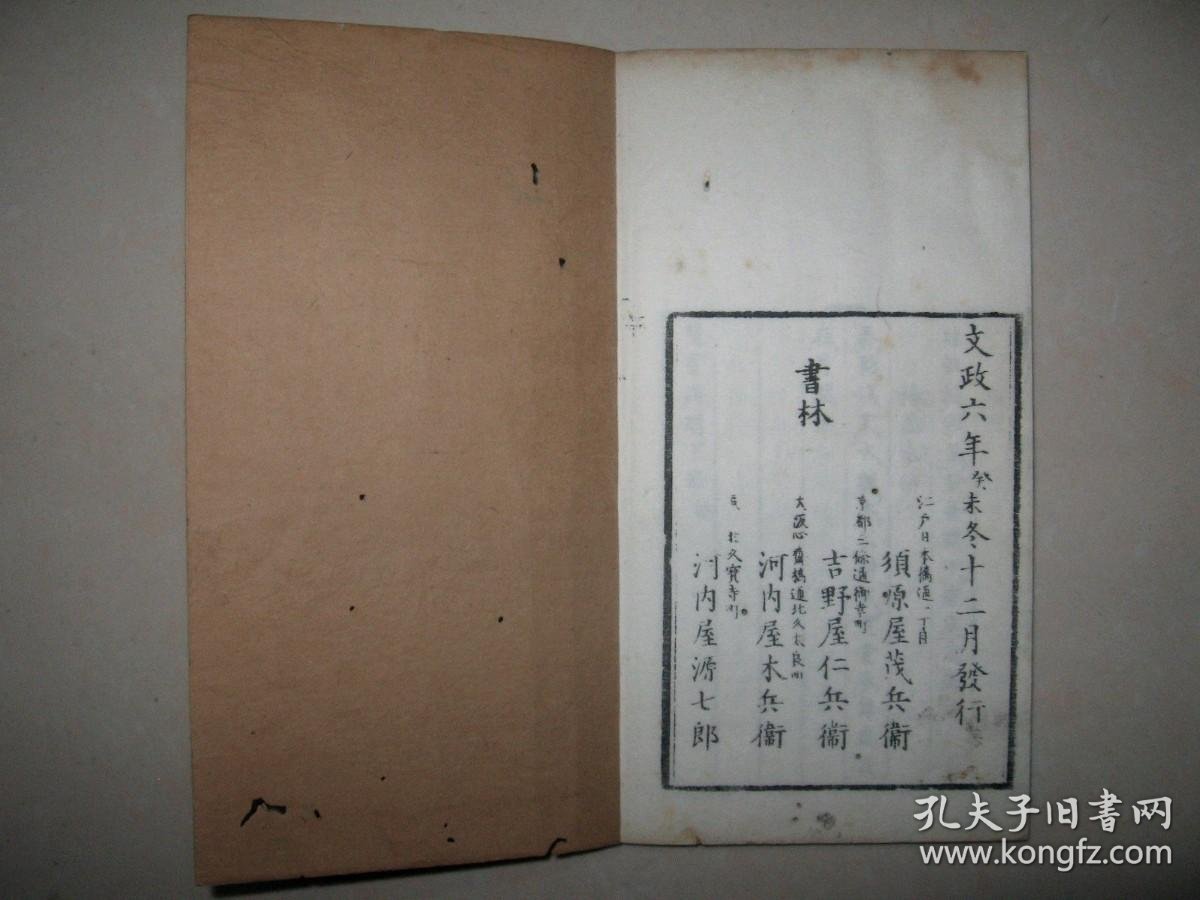 文政六年癸未冬十二月發行
書林
江戸日本橋通一丁目
須原屋茂兵衞
京都二條通御幸町
吉野屋仁兵衞
大阪心齋橋通北久太良町
河内屋木兵衞
同 北久寶寺町
河内屋源七郎
孔夫子旧书网
www.kongfz.com